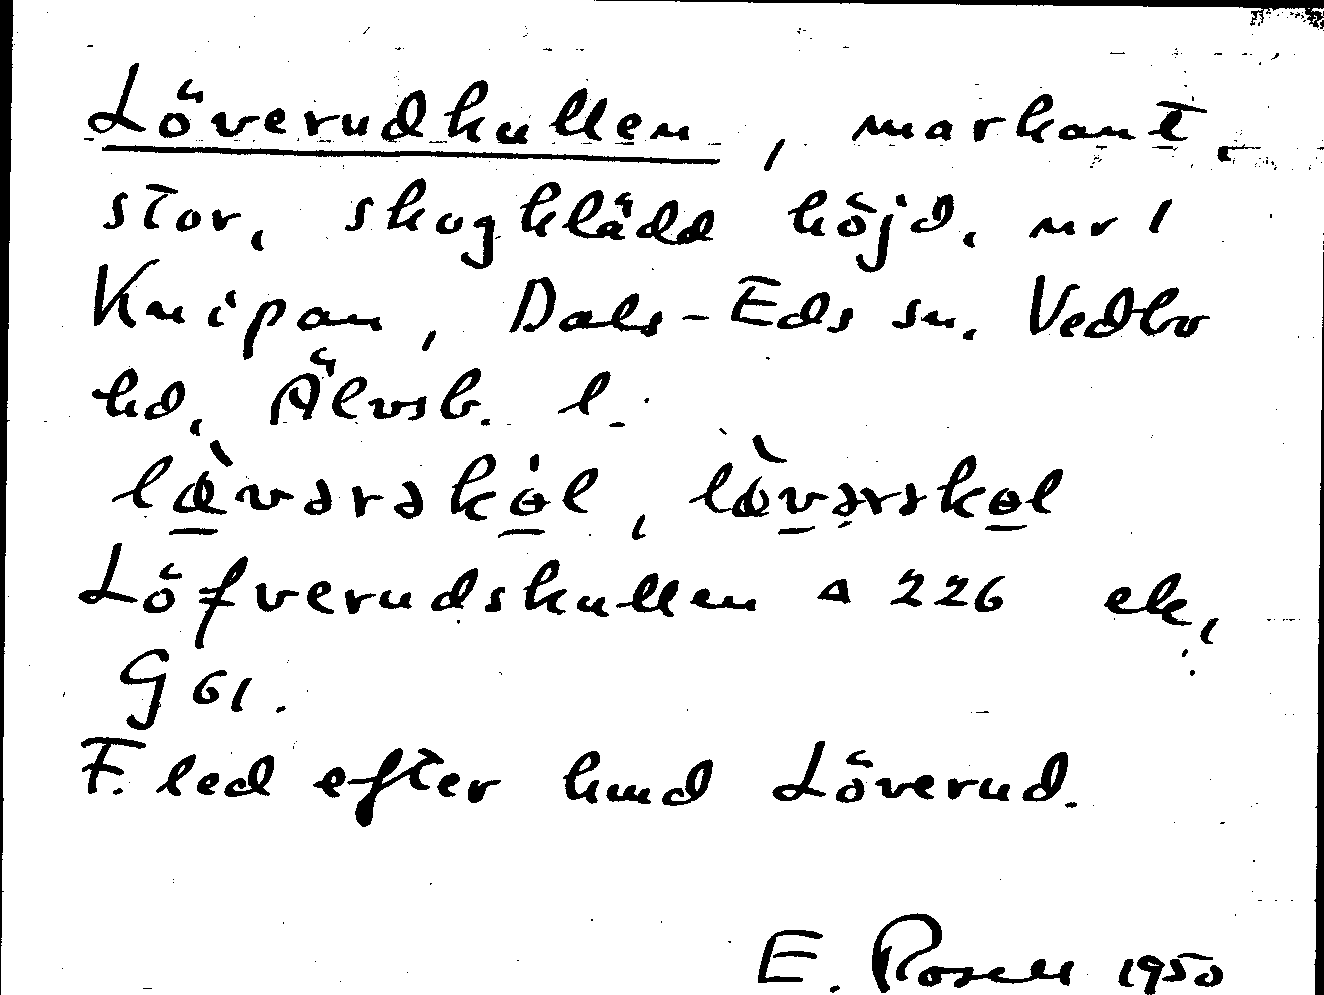 Löverudkullen, markant,
stor, skogklädd höjd, nr 1
Knipan, Dals-Eds sn. Vedbo
hd, Älvsb. l.
Löfverudskullen △ 226 ek,
G 61.
F. led efter hmd Löverud.
E. Rosell 1950